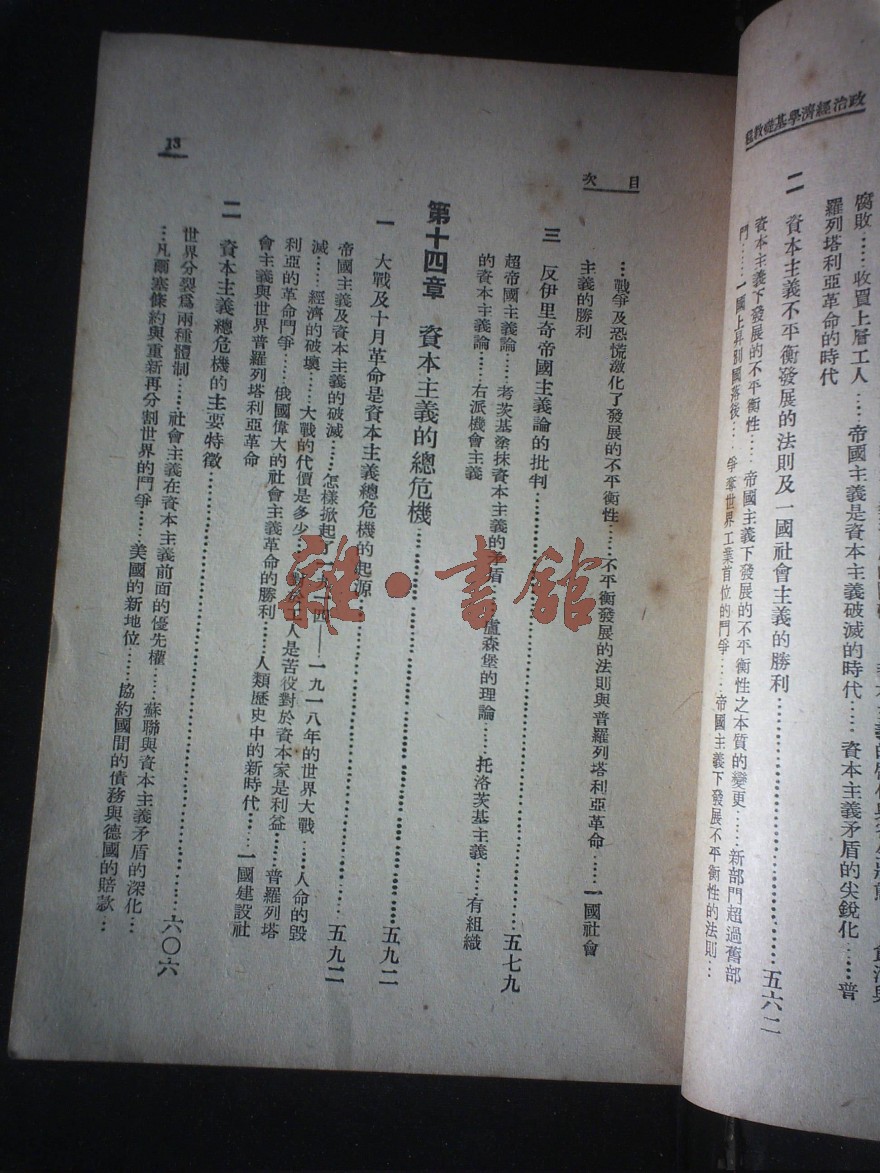 政治經濟學基礎教程
腐敗……收買上層工人……帝國主義是資本主義破滅的時代……資本主義矛盾的尖銳化……普
羅列塔利亞革命的時代
二 資本主義不平衡發展的法則及一國社會主義的勝利……五六二
資本主義下發展的不平衡性……帝國主義下發展的不平衡性之本質的變更……新部門超過舊部
門……一國上昇別國落後……爭奪世界工業首位的鬥爭……帝國主義下發展不平衡性的法則…
目 次
…戰爭及恐慌激化了發展的不平衡性……不平衡發展的法則與普羅列塔利亞革命……一國社會
主義的勝利
三 反伊里奇帝國主義論的批判……五七九
超帝國主義論……考茨基塗抹資本主義的矛盾……盧森堡的理論……托洛茨基主義……有組織
的資本主義論……右派機會主義
第十四章 資本主義的總危機……五九二
一 大戰及十月革命是資本主義總危機的起源……五九二
帝國主義及資本主義的破滅……怎樣掀起了一九一四——一九一八年的世界大戰……人命的毀
滅……經濟的破壞……大戰的代價是多少……對於工人是苦役對於資本家是利益……普羅列塔
利亞的革命鬥爭……俄國偉大的社會主義革命的勝利……人類歷史中的新時代……一國建設社
會主義與世界普羅列塔利亞革命
二 資本主義總危機的主要特徵……六〇六
世界分裂為兩種體制……社會主義在資本主義前面的優先權……蘇聯與資本主義矛盾的深化…
…凡爾塞條約與重新再分割世界的鬥爭……美國的新地位……協約國間的債務與德國的賠款…
13
雜·書館